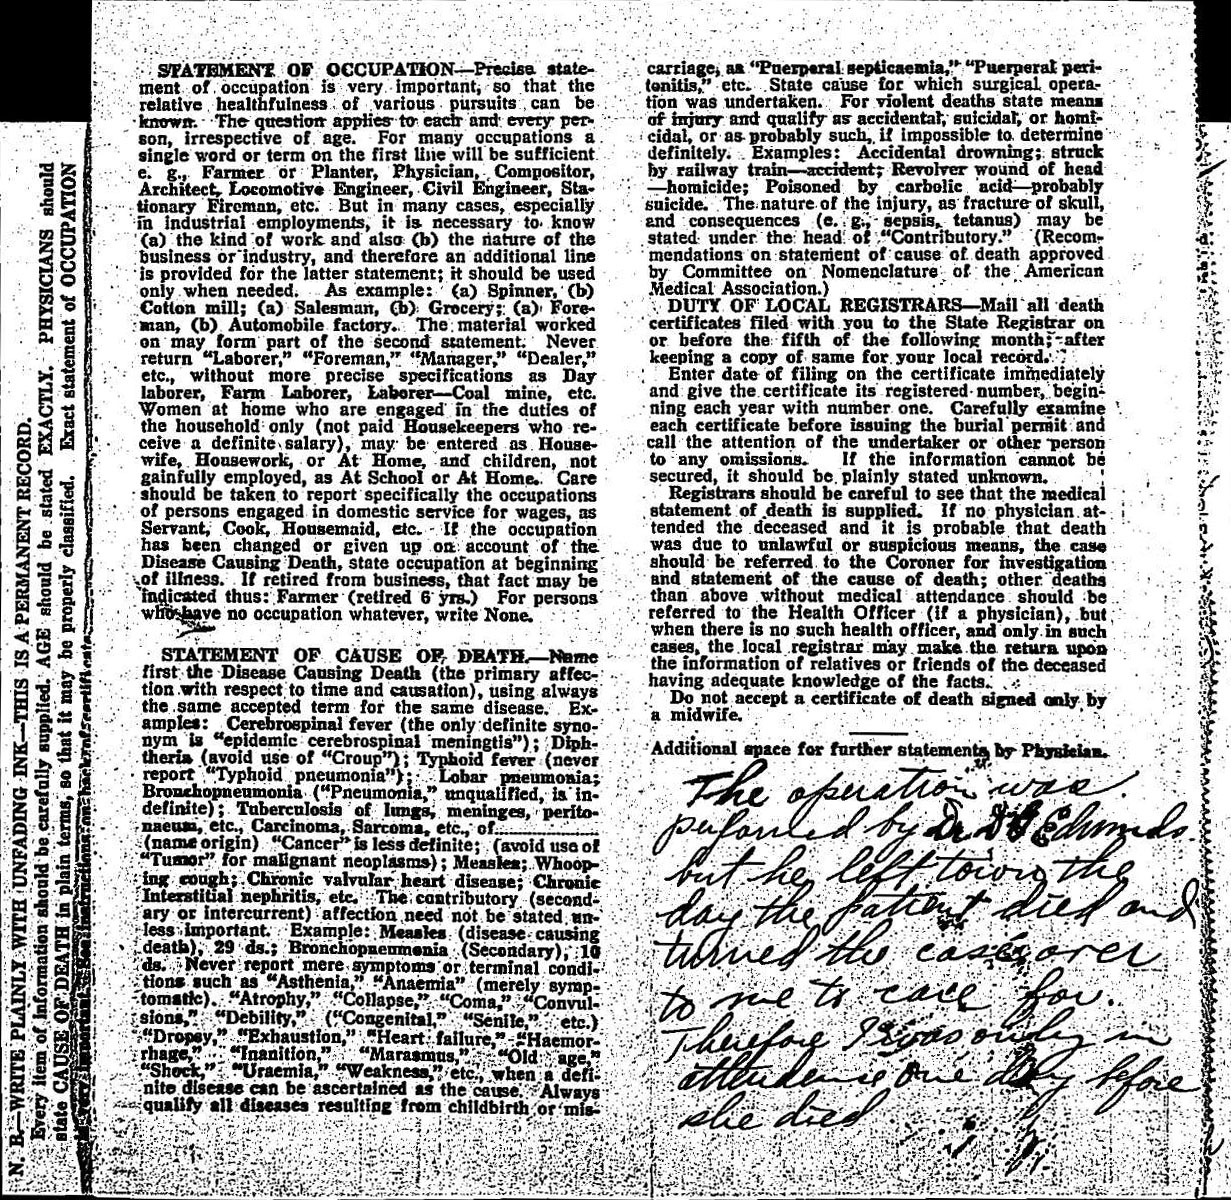 N. B.—WRITE PLAINLY WITH UNFADING INK—THIS IS A PERMANENT RECORD.
Every item of information should be carefully supplied. AGE should be stated EXACTLY. PHYSICIANS should
state CAUSE OF DEATH in plain terms, so that it may be properly classified. Exact statement of OCCUPATION
is very important. See instructions on back of certificate.
STATEMENT OF OCCUPATION—Precise state-
ment of occupation is very important, so that the
relative healthfulness of various pursuits can be
known. The question applies to each and every per-
son, irrespective of age. For many occupations a
single word or term on the first line will be sufficient
e. g., Farmer or Planter, Physician, Compositor,
Architect, Locomotive Engineer, Civil Engineer, Sta-
tionary Fireman, etc. But in many cases, especially
in industrial employments, it is necessary to know
(a) the kind of work and also (b) the nature of the
business or industry, and therefore an additional line
is provided for the latter statement; it should be used
only when needed. As example: (a) Spinner, (b)
Cotton mill; (a) Salesman, (b) Grocery; (a) Fore-
man, (b) Automobile factory. The material worked
on may form part of the second statement. Never
return "Laborer," "Foreman," "Manager," "Dealer,"
etc., without more precise specifications as Day
laborer, Farm Laborer, Laborer—Coal mine, etc.
Women at home who are engaged in the duties of
the household only (not paid Housekeepers who re-
ceive a definite salary), may be entered as House-
wife, Housework, or At Home, and children, not
gainfully employed, as At School or At Home. Care
should be taken to report specifically the occupations
of persons engaged in domestic service for wages, as
Servant, Cook, Housemaid, etc. If the occupation
has been changed or given up on account of the
Disease Causing Death, state occupation at beginning
of illness. If retired from business, that fact may be
indicated thus: Farmer (retired 6 yrs.) For persons
who have no occupation whatever, write None.
STATEMENT OF CAUSE OF DEATH.—Name
first the Disease Causing Death (the primary affec-
tion with respect to time and causation), using always
the same accepted term for the same disease. Ex-
amples: Cerebrospinal fever (the only definite syno-
nym is "epidemic cerebrospinal meningtis"); Diph-
theria (avoid use of "Croup"); Typhoid fever (never
report "Typhoid pneumonia"); Lobar pneumonia;
Bronchopneumonia ("Pneumonia," unqualified, is in-
definite); Tuberculosis of lungs, meninges, perito-
naeum, etc., Carcinoma, Sarcoma, etc., of
(name origin) "Cancer" is less definite; (avoid use of
"Tumor" for malignant neoplasms); Measles; Whoop-
ing cough; Chronic valvular heart disease; Chronic
Interstitial nephritis, etc. The contributory (second-
ary or intercurrent) affection need not be stated un-
less important. Example: Measles (disease causing
death), 29 ds.; Bronchopneumonia (Secondary), 10
ds. Never report mere symptoms or terminal condi-
tions such as "Asthenia," "Anaemia" (merely symp-
tomatic). "Atrophy," "Collapse," "Coma," "Convul-
sions," "Debility," ("Congenital," "Senile," etc.)
"Dropsy," "Exhaustion," "Heart failure," "Haemor-
rhage," "Inanition," "Marasmus," "Old age,"
"Shock," "Uraemia," "Weakness," etc., when a defi-
nite disease can be ascertained as the cause. Always
qualify all diseases resulting from childbirth or mis-
carriage, as "Puerperal septicaemia," "Puerperal peri-
tonitis," etc. State cause for which surgical opera-
tion was undertaken. For violent deaths state means
of injury and qualify as accidental, suicidal, or homi-
cidal, or as probably such, if impossible to determine
definitely. Examples: Accidental drowning; struck
by railway train—accident; Revolver wound of head
—homicide; Poisoned by carbolic acid—probably
suicide. The nature of the injury, as fracture of skull,
and consequences (e. g., sepsis, tetanus) may be
stated under the head of "Contributory." (Recom-
mendations on statement of cause of death approved
by Committee on Nomenclature of the American
Medical Association.)
DUTY OF LOCAL REGISTRARS—Mail all death
certificates filed with you to the State Registrar on
or before the fifth of the following month; after
keeping a copy of same for your local record.
Enter date of filing on the certificate immediately
and give the certificate its registered number, begin-
ning each year with number one. Carefully examine
each certificate before issuing the burial permit and
call the attention of the undertaker or other person
to any omissions. If the information cannot be
secured, it should be plainly stated unknown.
Registrars should be careful to see that the medical
statement of death is supplied. If no physician at-
tended the deceased and it is probable that death
was due to unlawful or suspicious means, the case
should be referred to the Coroner for investigation
and statement of the cause of death; other deaths
than above without medical attendance should be
referred to the Health Officer (if a physician), but
when there is no such health officer, and only in such
cases, the local registrar may make the return upon
the information of relatives or friends of the deceased
having adequate knowledge of the facts.
Do not accept a certificate of death signed only by
a midwife.
Additional space for further statements by Physician.
The operation was
performed by Dr. Edmonds
but he left town the
day the patient died and
turned the case over
to me to care for.
Therefore I was only in
attendence one day before
she died